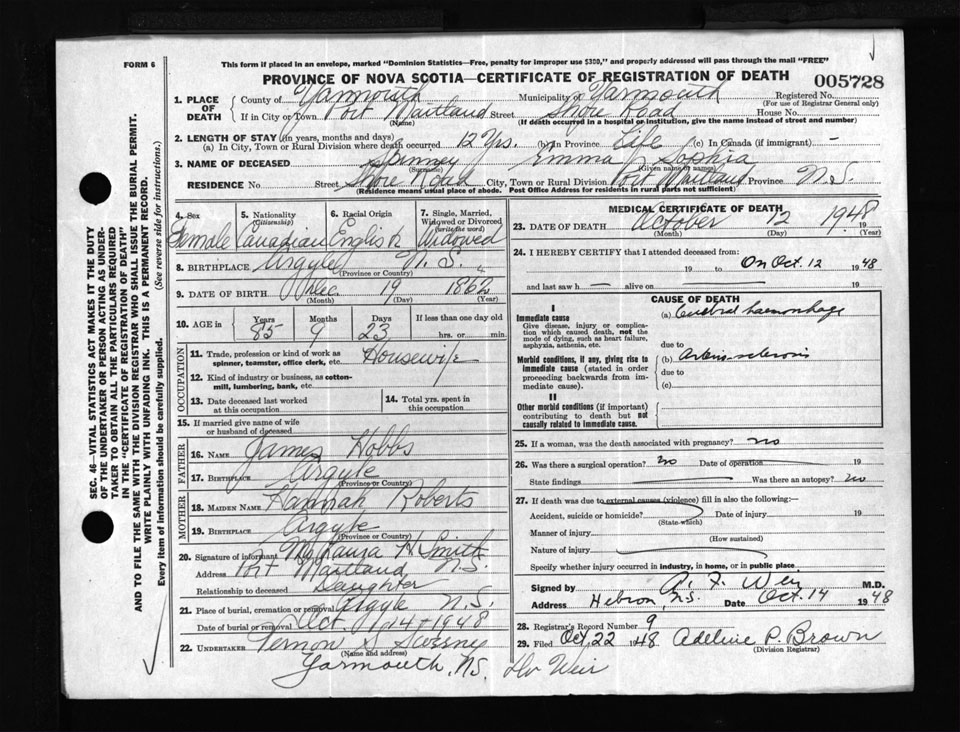 FORM 6
This form if placed in an envelope, marked "Dominion Statistics—Free, penalty for improper use $300," and properly addressed will pass through the mail "FREE"
PROVINCE OF NOVA SCOTIA—CERTIFICATE OF REGISTRATION OF DEATH
005728
1. PLACE OF DEATH
County of Yarmouth Municipality of Yarmouth Registered No.
(For use of Registrar General only)
If in City or Town Port Maitland Street Shore Road House No.
(Name) (If death occurred in a hospital or institution, give the name instead of street and number)
2. LENGTH OF STAY (in years, months and days)
(a) In City, Town or Rural Division where death occurred 12 Yrs. (b) In Province Life (c) In Canada (if immigrant) —
3. NAME OF DECEASED Spinney Emma Sophia
(Surname) (Given name or names)
RESIDENCE No Street Shore Road City, Town or Rural Division Port Maitland Province N.S.
(Residence means usual place of abode. Post Office Address for residents in rural parts not sufficient)
4. Sex Female
5. Nationality (Citizenship) Canadian
6. Racial Origin English
7. Single, Married, Widowed or Divorced (write the word) Widowed
8. BIRTHPLACE Argyle N.S.
(Province or Country)
9. DATE OF BIRTH 19 1862
(Month) (Day) (Year)
10. AGE in Years 85 Months 9 Days 23 If less than one day old
hrs. or min.
OCCUPATION
11. Trade, profession or kind of work as spinner, teamster, office clerk, etc. Housewife
12. Kind of industry or business, as cotton-mill, lumbering, bank, etc.
13. Date deceased last worked at this occupation
14. Total yrs. spent in this occupation
15. If married give name of wife or husband of deceased
FATHER
16. NAME James Hobbs
17. BIRTHPLACE Argyle
(Province or Country)
MOTHER
18. MAIDEN NAME Hannah Roberts
19. BIRTHPLACE Argyle
(Province or Country)
20. Signature of informant Laura H. Smith
Address Port Maitland N.S.
Relationship to deceased Daughter
21. Place of burial, cremation or removal Argyle N.S.
Date of burial or removal Oct. 14 1948
22. UNDERTAKER Vernon S Sweeny
(Name and address)
Yarmouth, N.S. Dr Weir
MEDICAL CERTIFICATE OF DEATH
23. DATE OF DEATH October 12 1948 19
(Month) (Day) (Year)
24. I HEREBY CERTIFY that I attended deceased from:
19 to On Oct. 12 1948
and last saw h — alive on 19
CAUSE OF DEATH
I
Immediate cause
Give disease, injury or complication which caused death, not the mode of dying, such as heart failure, asphyxia, asthenia, etc.
(a) Cerebral haemorrhage
due to
Morbid conditions, if any, giving rise to immediate cause (stated in order proceeding backwards from immediate cause).
(b) Arterio-sclerosis
due to
(c)
II
Other morbid conditions (if important) contributing to death but not causally related to immediate cause.
25. If a woman, was the death associated with pregnancy? no
26. Was there a surgical operation? no Date of operation 19
State findings Was there an autopsy? no
27. If death was due to external causes (violence) fill in also the following:—
Accident, suicide or homicide? Date of injury 19
(State which)
Manner of injury
(How sustained)
Nature of injury
Specify whether injury occurred in industry, in home, or in public place
Signed by A. F. Weir M.D.
Address Hebron, N.S. Date Oct. 14 1948
28. Registrar's Record Number 9
29. Filed Oct 22 1948 Adeline P. Brown
(Division Registrar)
SEC. 46—VITAL STATISTICS ACT MAKES IT THE DUTY
OF THE UNDERTAKER OR PERSON ACTING AS UNDER-
TAKER TO OBTAIN ALL THE PARTICULARS REQUIRED
IN THE "CERTIFICATE OF REGISTRATION OF DEATH"
AND TO FILE THE SAME WITH THE DIVISION REGISTRAR WHO SHALL ISSUE THE BURIAL PERMIT.
WRITE PLAINLY WITH UNFADING INK. THIS IS A PERMANENT RECORD.
Every item of information should be carefully supplied. (See reverse side for instructions.)